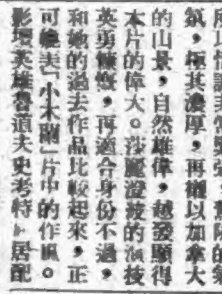 氛，極其濃厚，再襯以加拿大
的山景，自然雄偉，越發顯得
本片的偉大。演技
英勇慷慨，再適合身份不過，
和她的過去作品比較起來，正
可媲美「小木蘭」片中的作風。
影壇英雄魯道夫史考特，居配